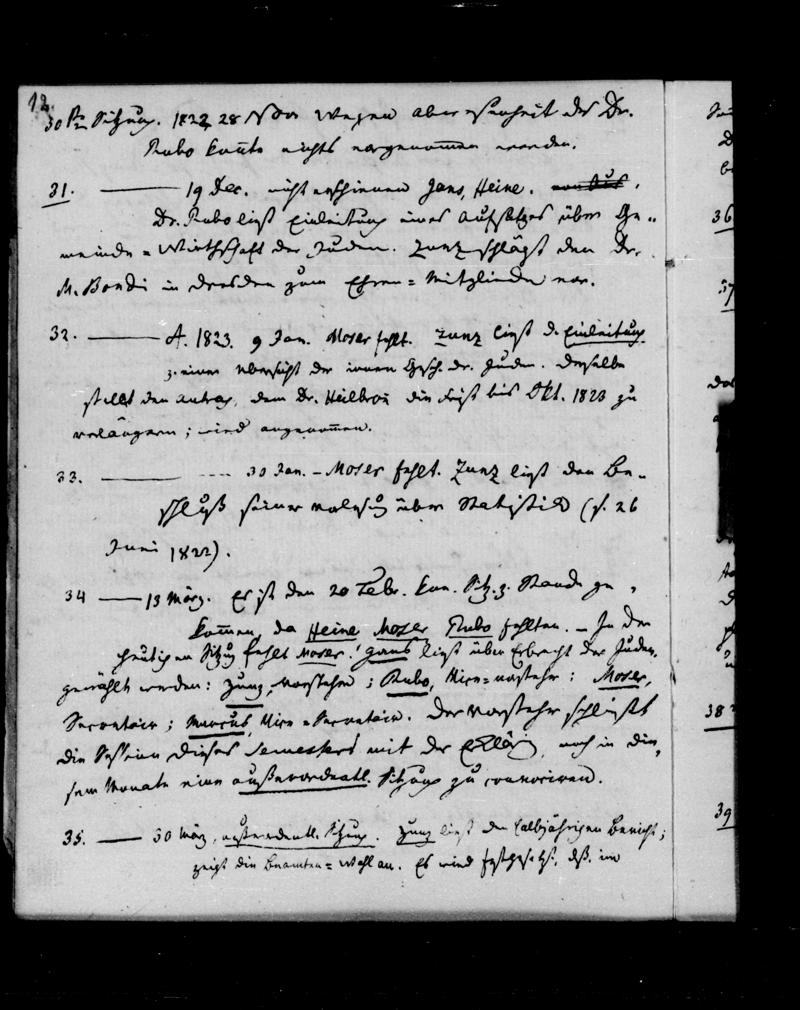 12.
30te Sitzung. 1822, 28 Nov. Wegen Abwesenheit des Dr.
Rubo konnte nichts vorgenommen werden.
31. 19 Dec. nicht erschienen Gans, Heine.
Dr. Rubo liest Einleitung eines Aufsatzes über Ge-
meinde-Wirthschaft der Juden. Zunz schlägt den Dr.
M. Bondi in Dresden zum Ehren-Mitgliede vor.
32. A. 1823. 9 Jan. Moser fehlt. Zunz liest d. Einleitung
z. einer Übersicht der innern Gesch. der Juden. Derselbe
stellt den Antrag, dem Dr. Heilbron die Frist bis Okt. 1823 zu
verlängern; wird angenommen.
33. 30 Jan. – Moser fehlt. Zunz liest den Be-
schluß seiner Vorlesung über Statistik (s. 26
Juni 1822).
34 13 März. Es ist den 20 Febr. kein. Sitz. z. Stande ge-
kommen, da Heine Moser Rubo fehlten. – In der
heutigen Sitzung fehlt Moser. Gans liest über Erbrecht der Juden.
gewählt werden: Zunz, Vorsteher; Rubo, Vice-Vorsteher: Moser,
Secretair; Marcus, Vice-Secretair. Der Vorsteher schließt
die Session dieses Semesters mit der Erklärung, noch in die-
sem Monate eine außerordentl. Sitzung zu convociren.
35. 30 März, außerordentl. Sitzung. Zunz liest den halbjährigen Bericht;
zeigt die Beamten-Wahl an. Es wird festgesetzt, daß im
36
37
38
39